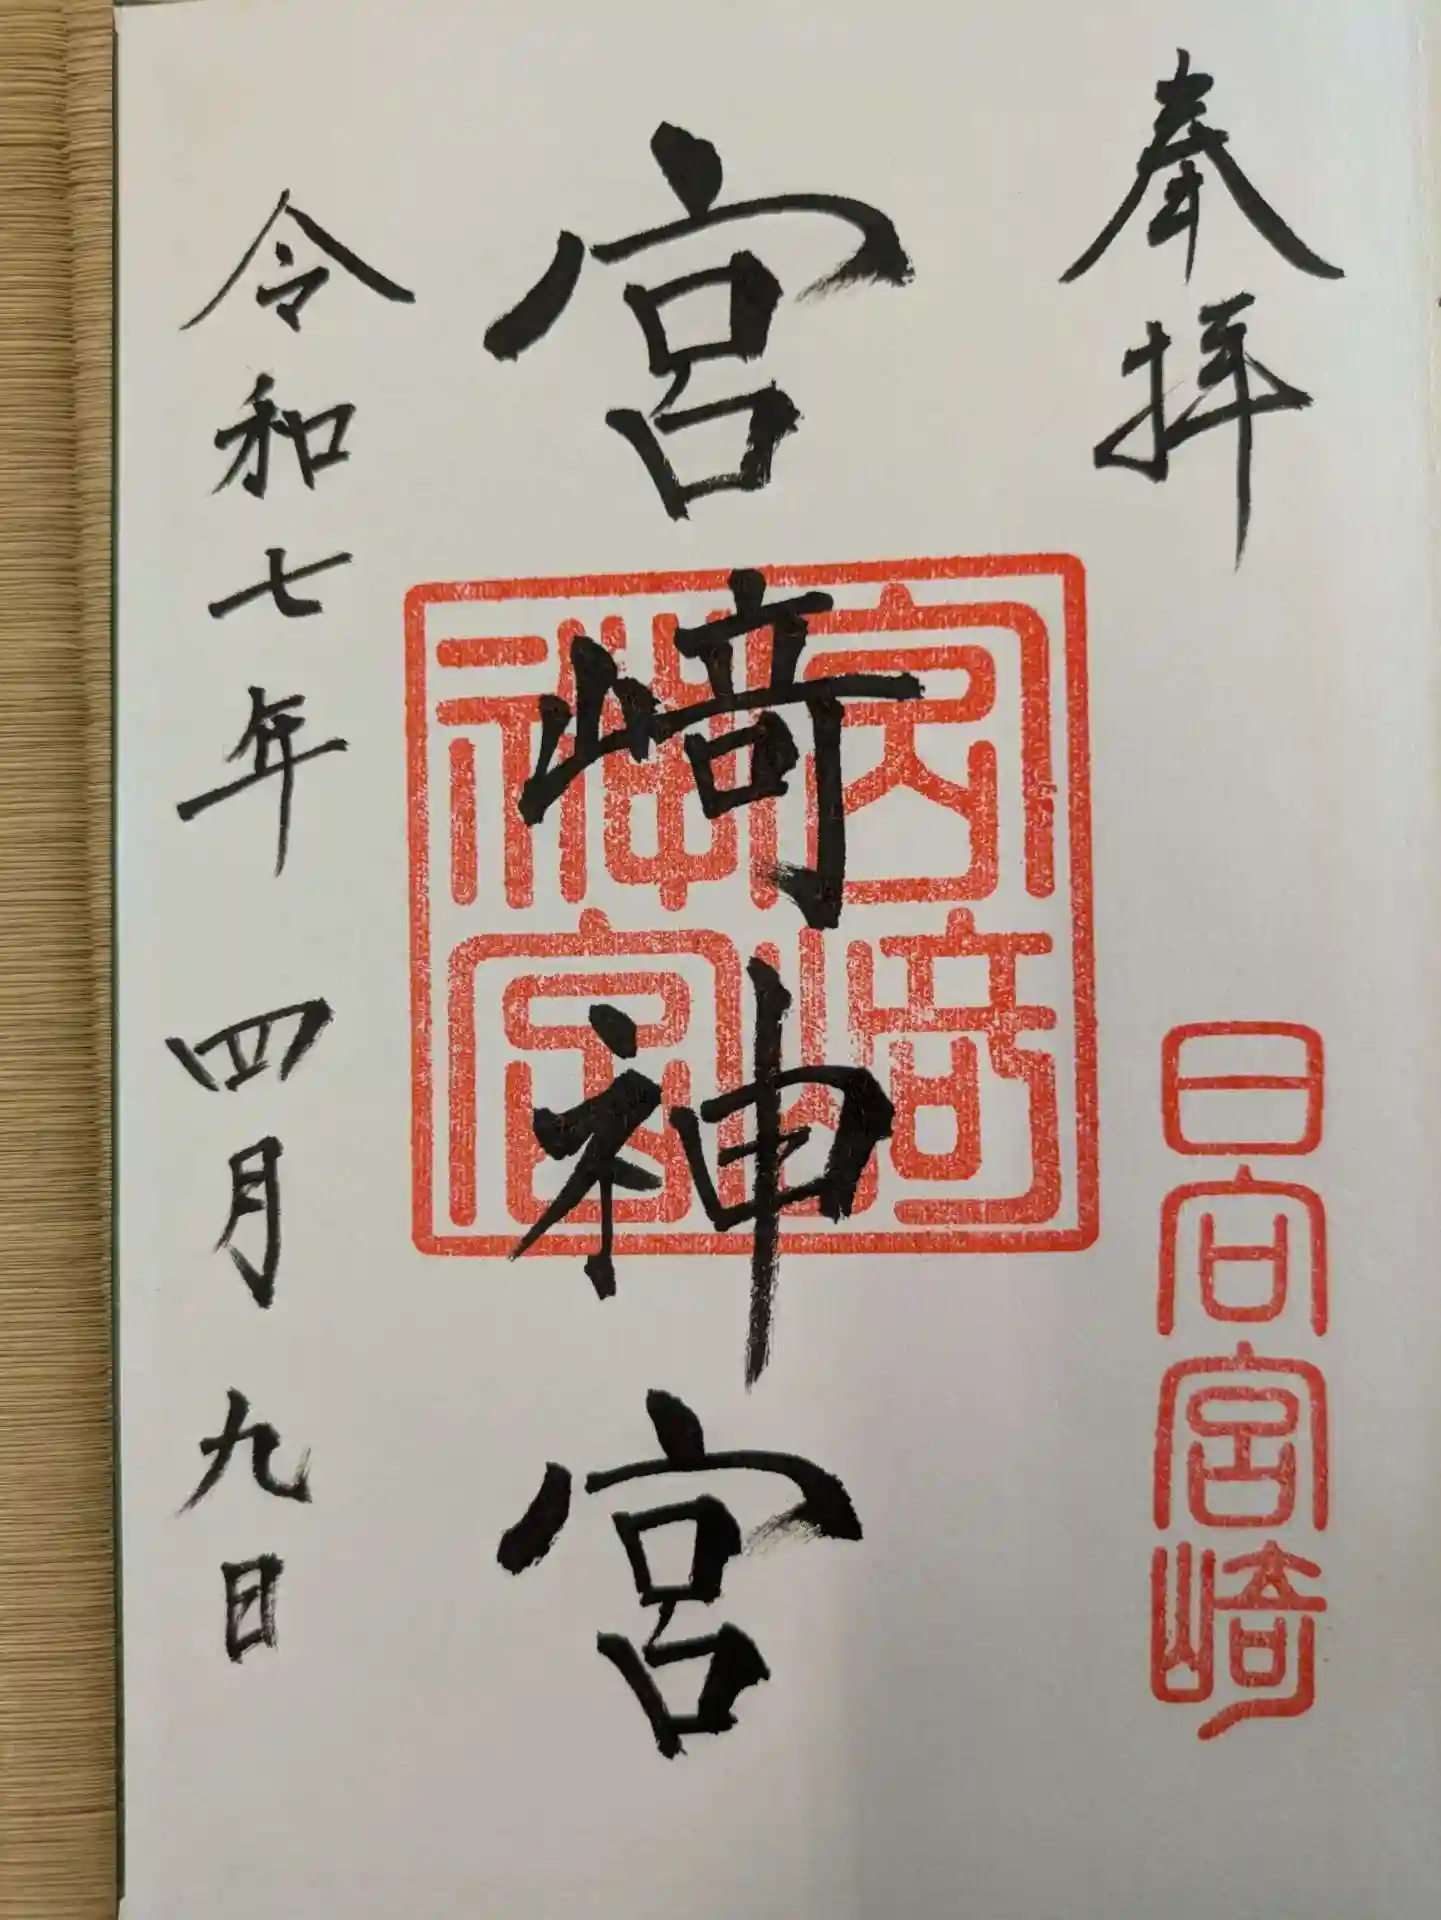 奉拝
日向宮崎
宮﨑神宮
宮﨑神宮
令和七年四月九日